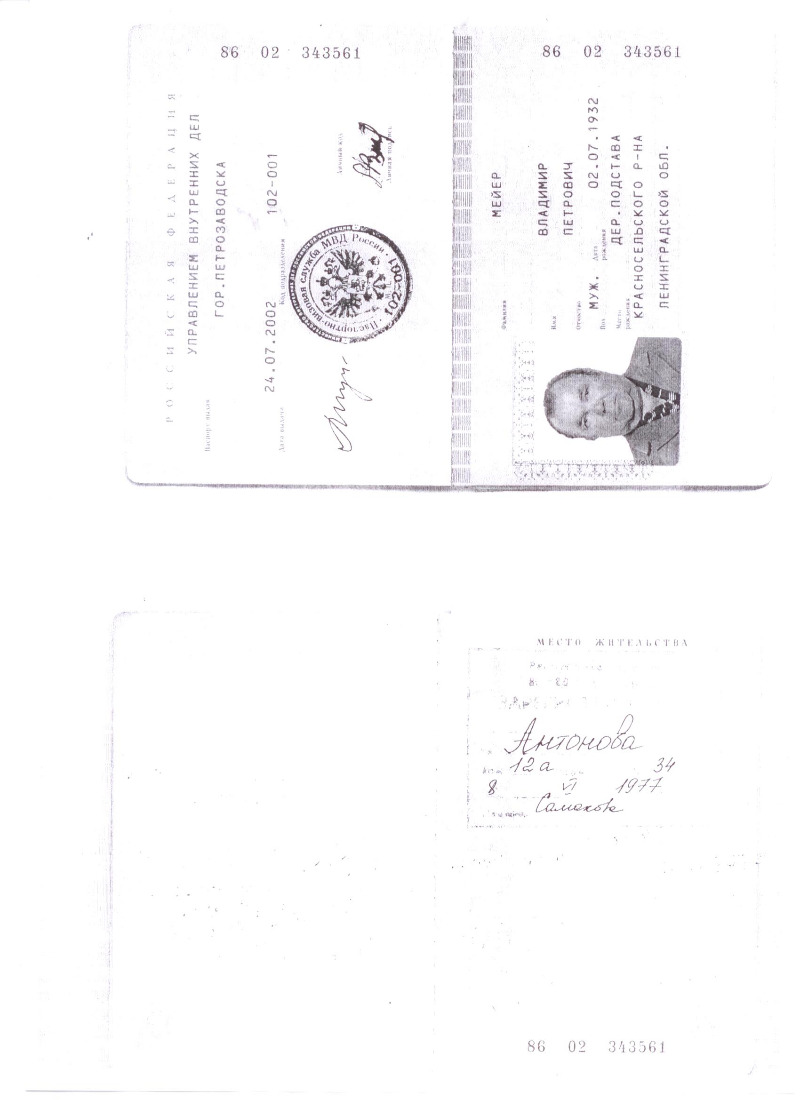 86 02 343561
РОССИЙСКАЯ ФЕДЕРАЦИЯ
Паспорт выдан
УПРАВЛЕНИЕМ ВНУТРЕННИХ ДЕЛ
ГОР.ПЕТРОЗАВОДСКА
Дата выдачи
24.07.2002
Код подразделения
102-001
Паспортно-визовая служба МВД России
102-001
Личный код
Личная подпись
86 02 343561
Фамилия
МЕЙЕР
Имя
ВЛАДИМИР
Отчество
ПЕТРОВИЧ
Пол
МУЖ.
Дата рождения
02.07.1932
Место рождения
ДЕР.ПОДСТАВА
КРАСНОСЕЛЬСКОГО Р-НА
ЛЕНИНГРАДСКОЙ ОБЛ.
МЕСТО ЖИТЕЛЬСТВА
Антонова
12а 34
8 VI 1977
86 02 343561